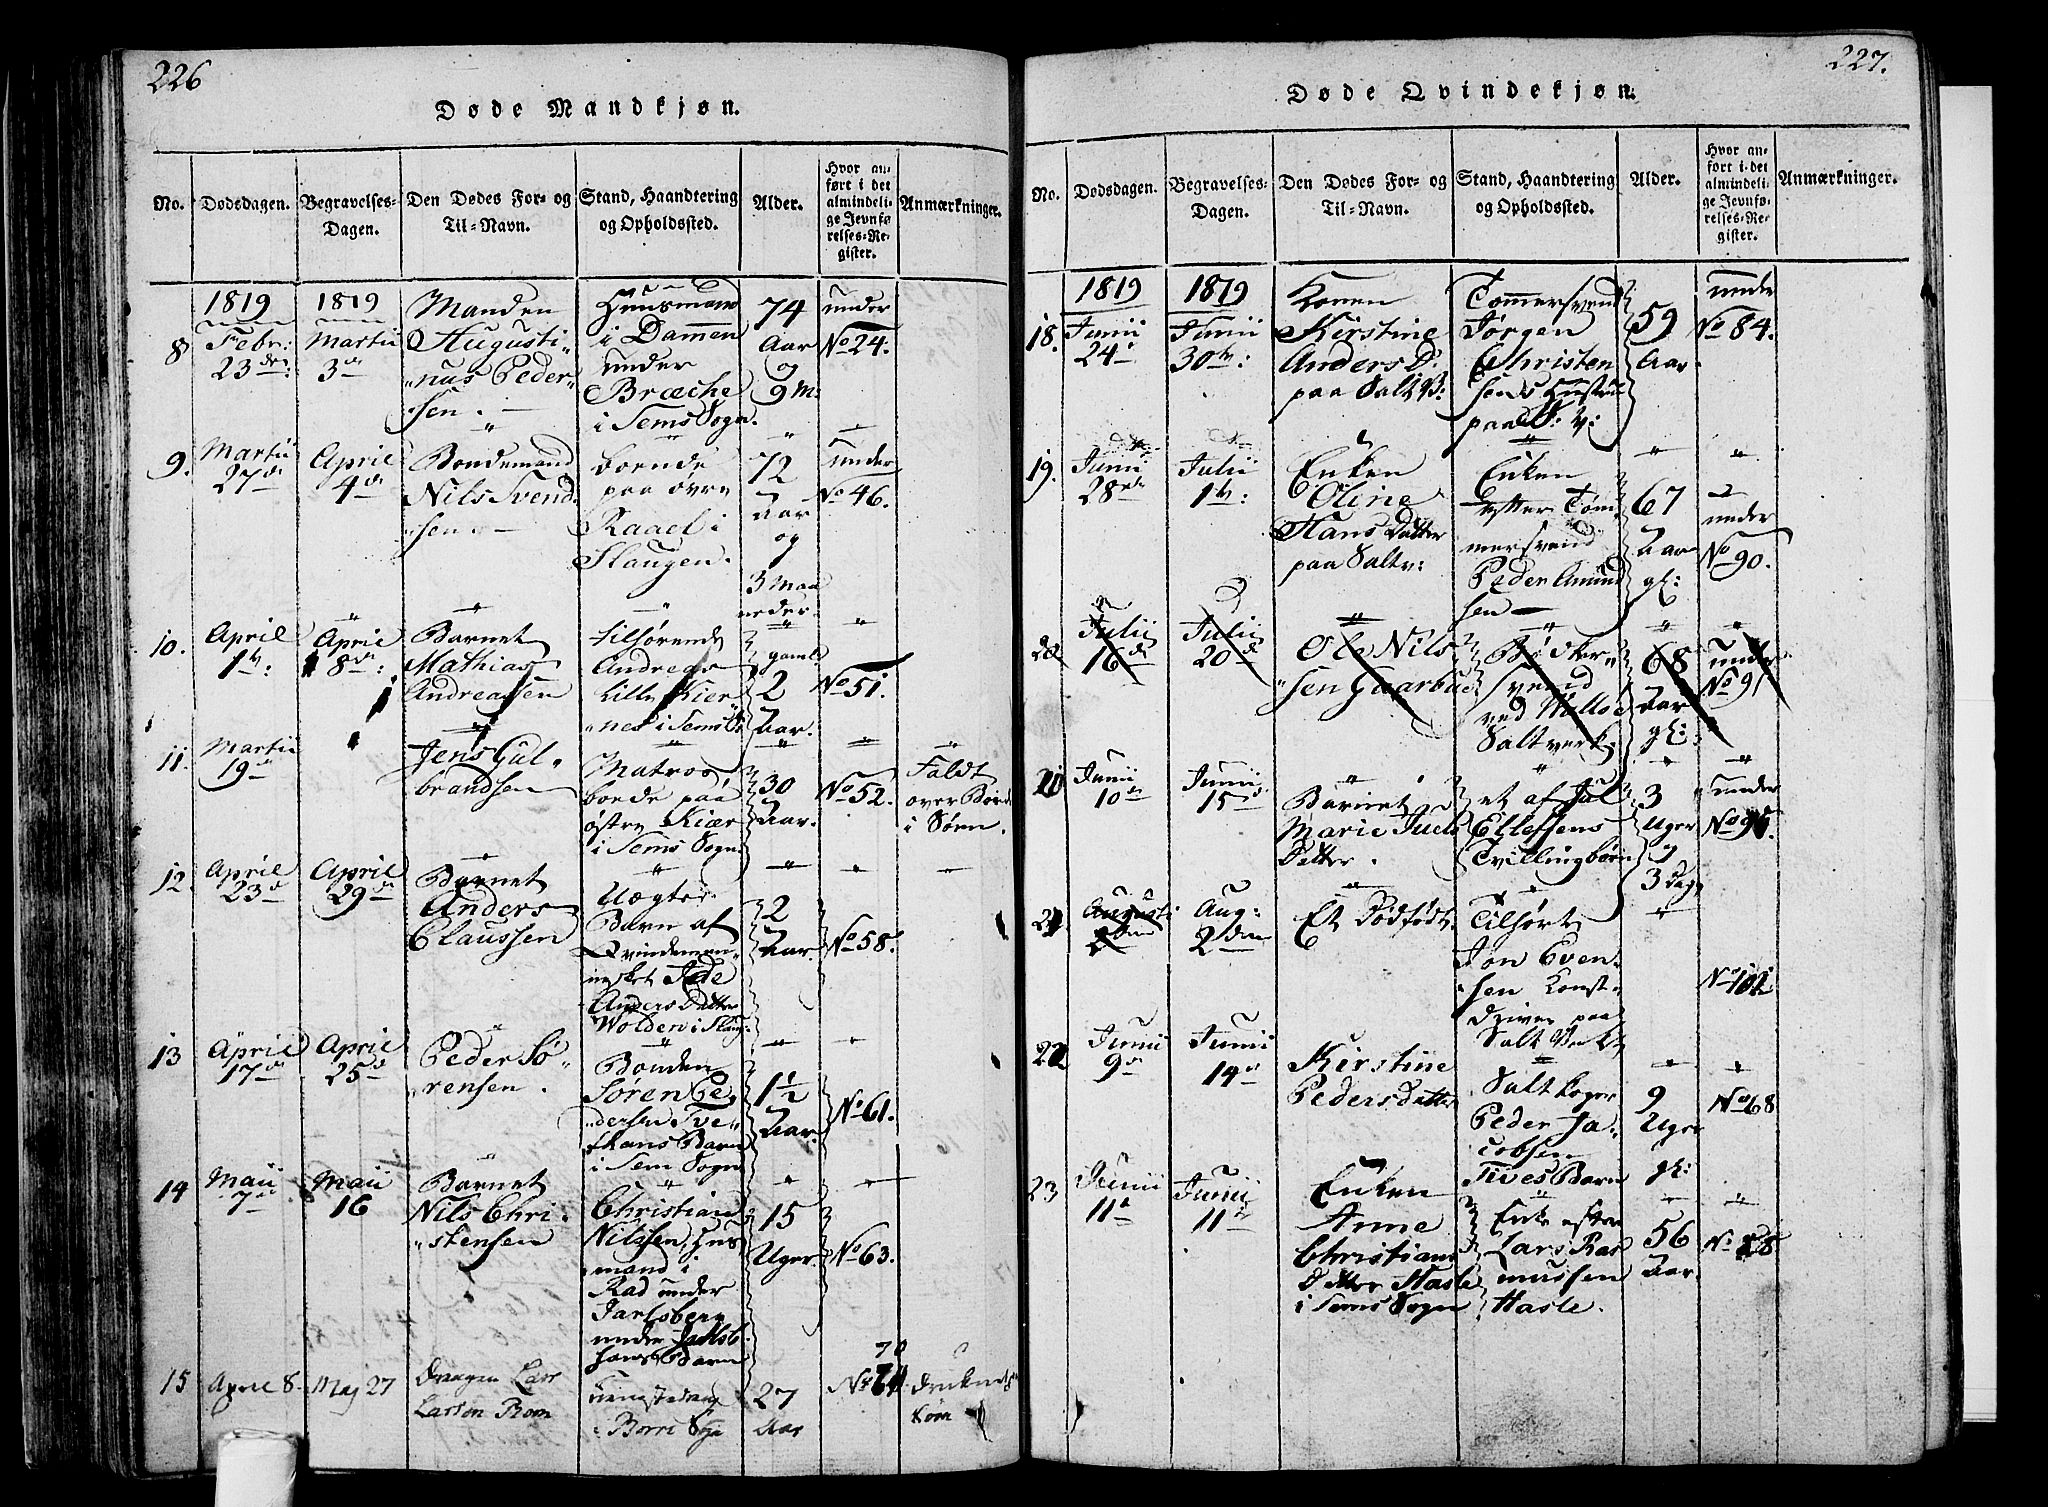 226
Døde Mandkjøn.
No.
Dødsdagen.
Begravelses-
Dagen.
Den Dødes For- og
Til-Navn.
Stand, Haandtering
og Opholdssted.
Alder.
Hvor an-
ført i det
almindeli-
ge Jevnfø-
relses-Re-
gister.
Anmærkninger.
8
1819
Febr:
23de:
1819
Martii
3de
Manden
Augusti-
nus Peder-
sen.
Huusmand
i Dammen
under
Bræche
i Sems Sogn.
74
Aar
og
9 M:
under
No 24.
9.
Martii
27de
April
4de
Bondemand
Nils Svend-
sen.
boende
paa øvre
Raael i
Slaugen.
72
Aar
og
3 Maa
neder.
under
No 46.
10.
April
1te:
April
8de:
Barnet
Mathias
Andreassen
tilhørende
Andreas
Lille Kier-
nes i Sems S:
gaml
2
Aar.
No 51.
11.
Martii
19de
Jens Gul-
brandsen
Matros
boende paa
østre Kiær
i Sems Sogn
30
Aar.
No 52.
Faldt
over Bord
i Søen.
12
April
23de
April
29de
Barnet
Anders
Claussen
Uægte
Barn af
Qvindemen-
nesket Ide
Anders Datter
Wolden i Slaug:
2
Aar.
No 58.
13
April
17de
April
25de
Peder Sø-
rensen.
Bonden
Søren Pe-
dersen Tve-
tens Barn
i Sem Sogn
1½
Aar.
No 61.
14
Maii
7de
Maii
16
Barnet
Nils Chri-
stensen
Christian
Nilssen, Huus
mand i
Rad under
Jarlsberg
under
hans Barn
15
Uger.
No 63.
15
April 8.
Maj 27
Drengen Lars
Larsen Rom
Tienestedreng
i Borre Sogn
27
Aar
70
No
Druknet i
Søen
227.
Døde Qvindekjøn.
No.
Dødsdagen.
Begravelses-
Dagen.
Den Dødes For- og
Til-Navn.
Stand, Haandtering
og Opholdssted.
Alder.
Hvor an-
ført i det
almindeli-
ge Jevnfø-
relses-Re-
gister.
Anmærkninger.
18.
1819
Junii
24de
1819
Junii
30te:
Konen
Kirstine
Anders D:
paa Salt V:
Tømmersvend
Jørgen
Christen
sens Hustru
paa S: V:
59
Aar.
under
No 84.
19.
Junii
28de
Julii
1te:
Enken
Oline
Hans Datter
paa Saltv:
Enken
efter Tøm-
mersvend
Peder Amund
sen
67
Aar
gl:
under
No 90.
20
Julii
16de
Julii
20de
Ole Nils-
sen Gaarbue
Bødker-
svend
ved Walløe
Saltverk.
68
Aar
gl:
under
No 91
Junii
10de
Junii
15de
Barnet
Marie Juels
Datter.
et af Juel
Ellefsens
Tvillingbørn
3
Uger
og
3 Dage
under
No 95.
21
Augusti
2den
Aug:
2den
Et Dødfødt
Tilhørt
Jon Even-
sen Konst-
driver paa
Salt Verket
No 101
22
Junii
9de
Junii
14de
Kirstine
Peders Datter
Salt Koger
Peder Ja-
cobsen
Tves Barn
9
Uger
gl:
No 68
23
Junii
11te
Junii
11te
Enken
Anne
Christians
Datter Hasle
i Sems Sogn
Enke efter
Lars Ras-
mussen
Hasle.
56
Aar.
No